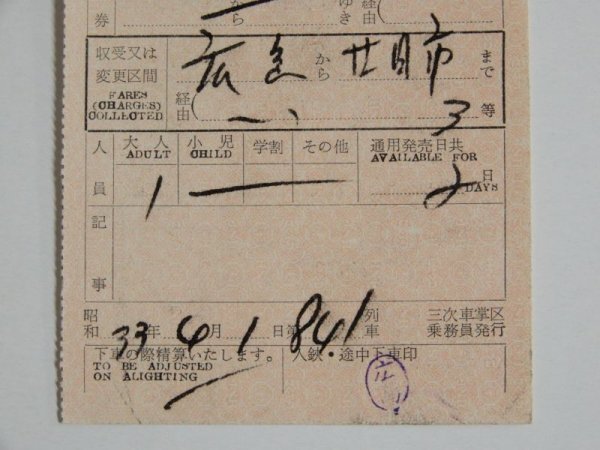 券 から ゆき 経由(
収受又は変更区間 広島から廿日市まで
FARES (CHARGES) COLLECTED 経由( 3等
人員 大人 ADULT 小児 CHILD 学割 その他 通用発売日共 AVAILABLE FOR
1 2日 DAYS
記事
昭和33年4月1日第841列車 三次車掌区乗務員発行
下車の際精算いたします。 入鋏・途中下車印
TO BE ADJUSTED
ON ALIGHTING